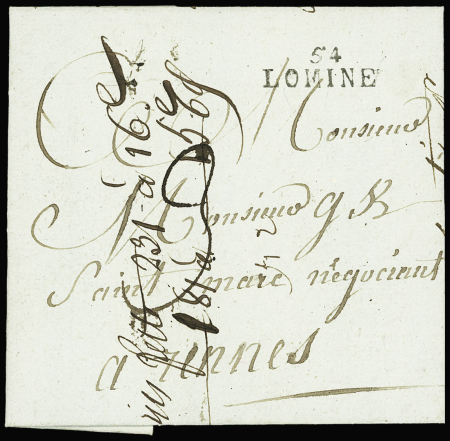 54
LOMINE
Monsieur
Monsieur g R
Saint marc négociant
a rennes
231 a 16